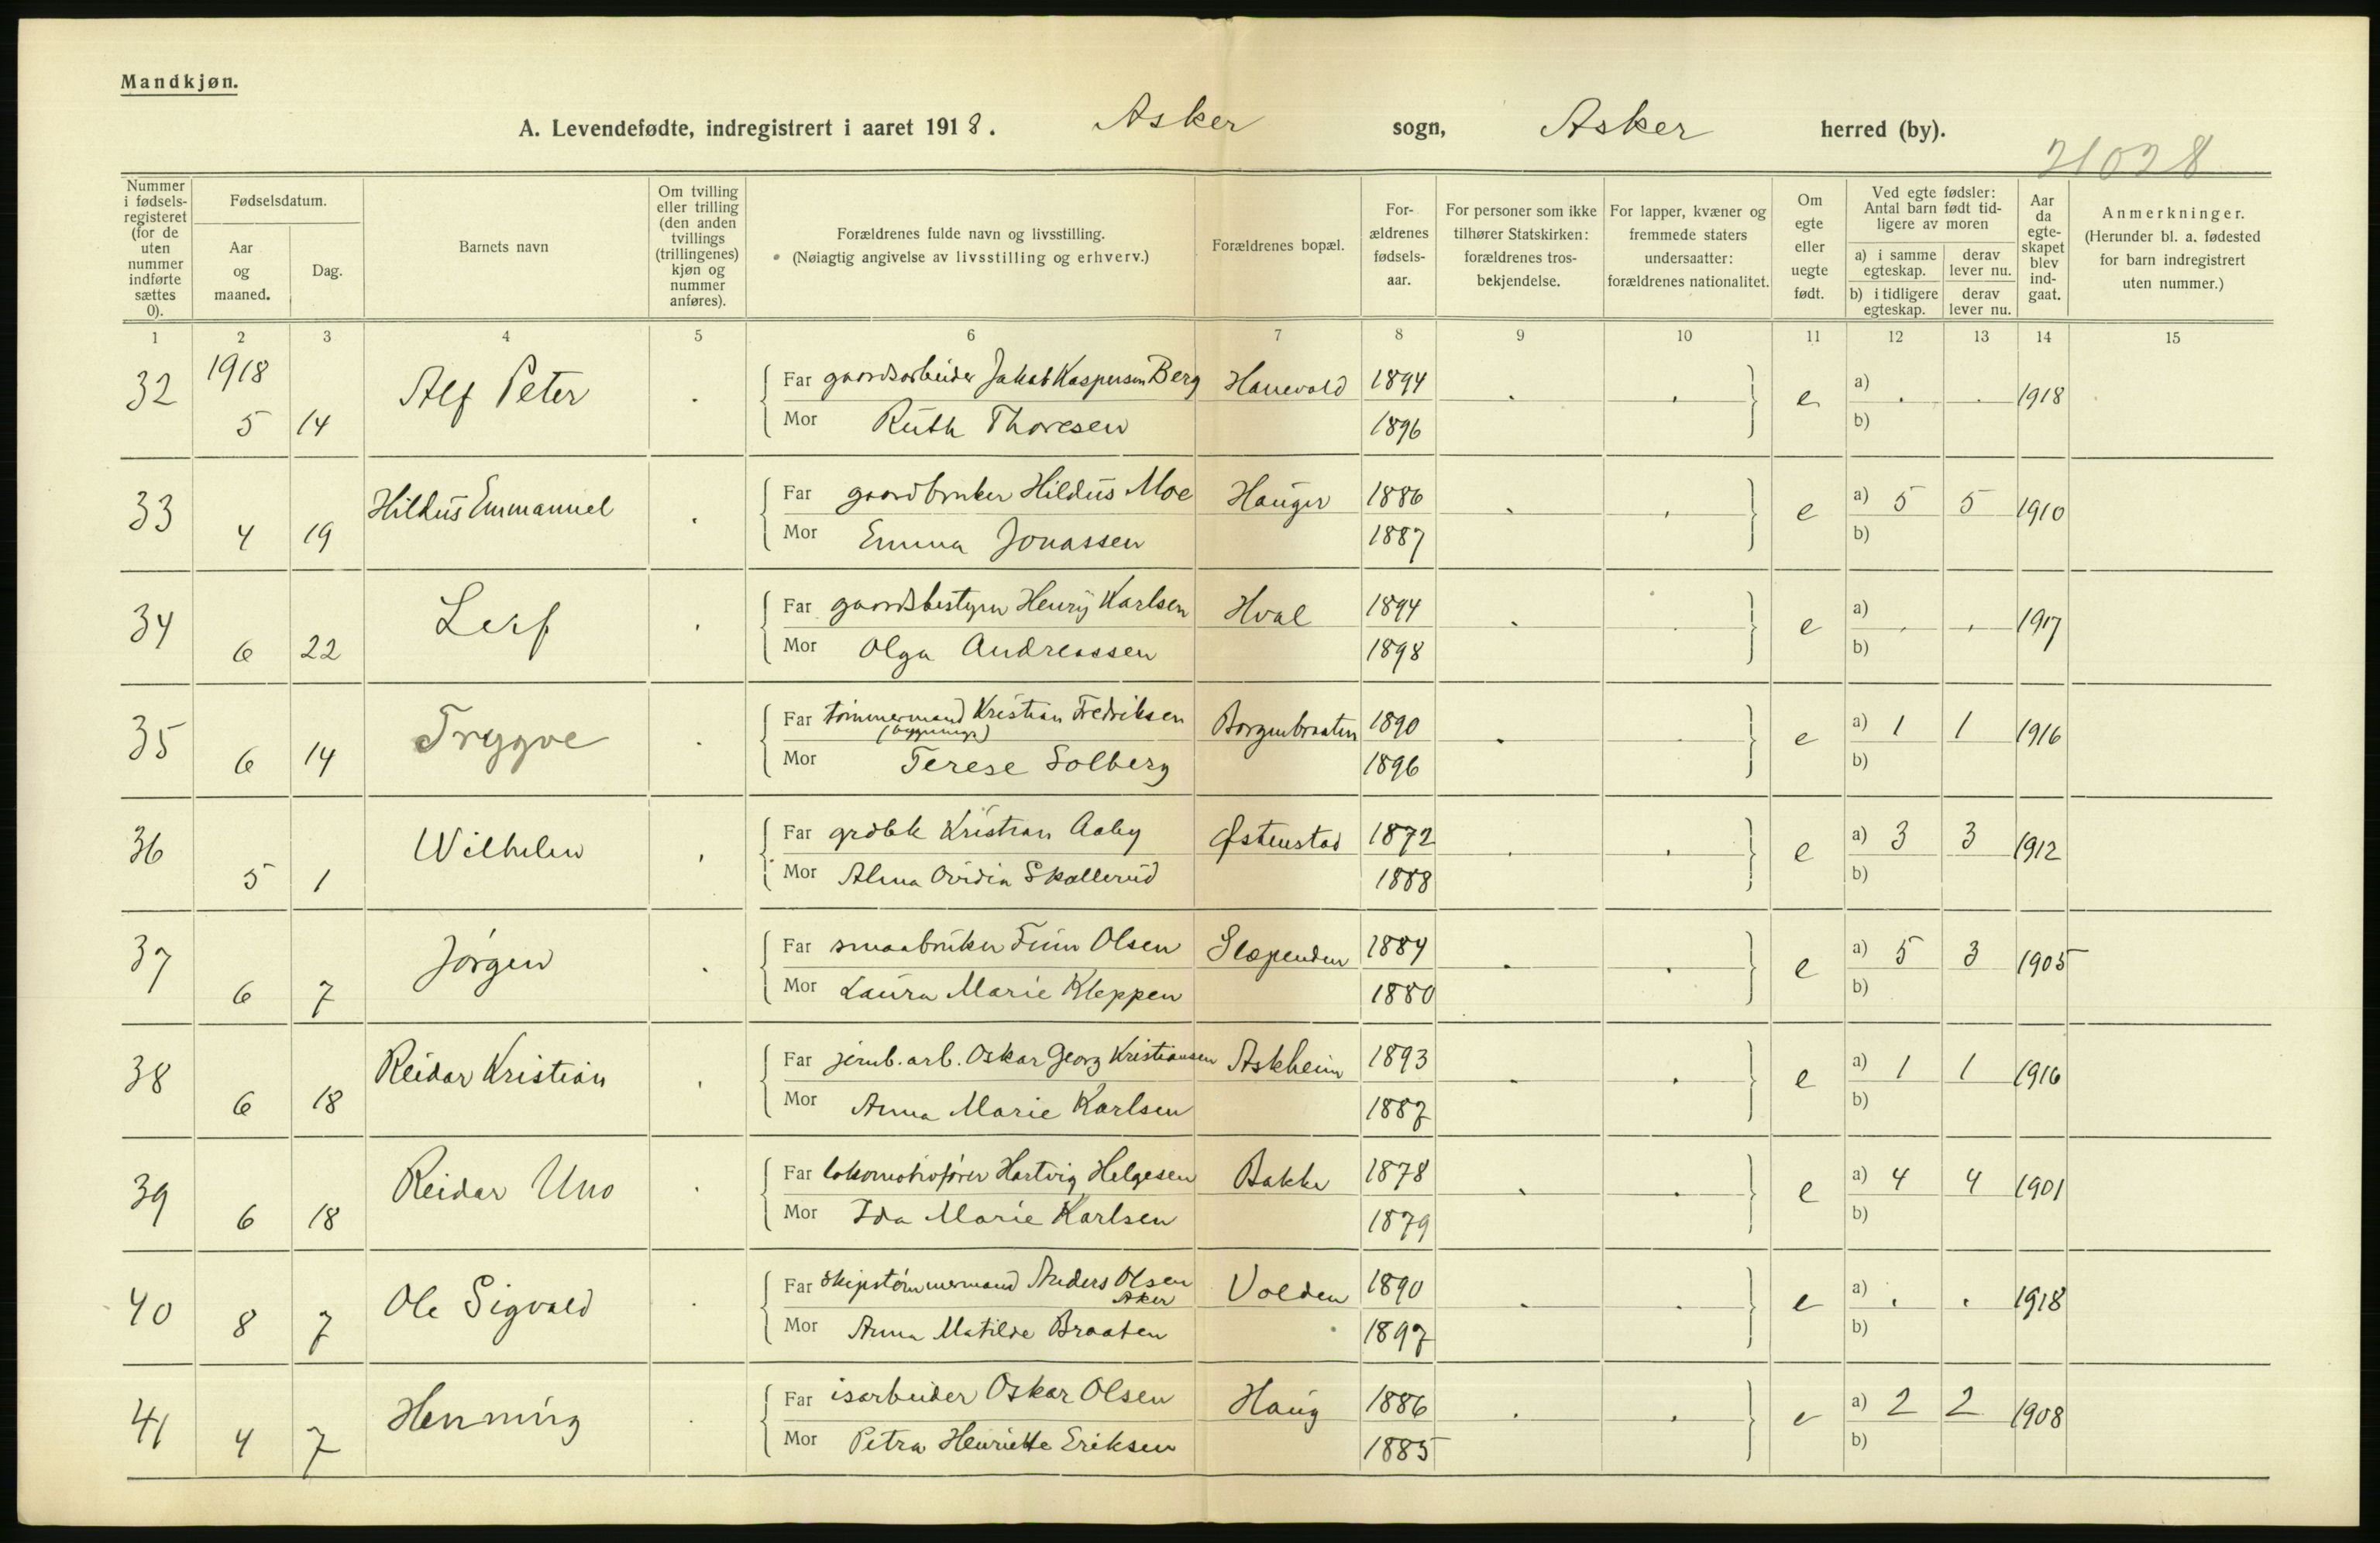 Mandkjøn.
A. Levendefødte, indregistrert i aaret 1918. Asker sogn, Asker herred (by).
21028
Nummer i fødsels-registeret (for de uten nummer indførte sættes 0).
Fødselsdatum.
Aar og maaned.
Dag.
Barnets navn
Om tvilling eller trilling (den anden tvillings (trillingenes) kjøn og nummer anføres).
Forældrenes fulde navn og livsstilling.
(Nøiagtig angivelse av livsstilling og erhverv.)
Forældrenes bopæl.
For-ældrenes fødsels-aar.
For personer som ikke tilhører Statskirken: forældrenes tros-bekjendelse.
For lapper, kvæner og fremmede staters undersaatter: forældrenes nationalitet.
Om egte eller uegte født.
Ved egte fødsler: Antal barn født tid-ligere av moren
a) i samme egteskap.
derav lever nu.
b) i tidligere egteskap.
derav lever nu.
Aar da egte-skapet blev ind-gaat.
Anmerkninger.
(Herunder bl. a. fødested for barn indregistrert uten nummer.)
1 2 3 4 5 6 7 8 9 10 11 12 13 14 15
1918
32 5 14 Alf Peter Far gaardsarbeider Jakob Kaspersen Berg Hanevold 1894 e a) 1918
Mor Ruth Thoresen 1896 b)
33 4 19 Hildus Emmanuel Far gaardbruker Hildus Moe Hauger 1886 e a) 5 5 1910
Mor Emma Jonassen 1887 b)
34 6 22 Leif Far gaardsbestyrer Henry Karlsen Hval 1894 e a) 1917
Mor Olga Andreassen 1898 b)
35 6 14 Trygve Far tømmermand Kristian Fredriksen Borgenbraaten 1890 e a) 1 1 1916
(bygnings)
Mor Terese Solberg 1896 b)
36 5 1 Wilhelm Far grdbk Kristian Aaby Østenstad 1872 e a) 3 3 1912
Mor Alma Ovidia Skallerud 1888 b)
37 6 7 Jørgen Far smaabruker Finn Olsen Slependen 1884 e a) 5 3 1905
Mor Laura Marie Kleppen 1880 b)
38 6 18 Reidar Kristian Far jernb. arb. Oskar Georg Kristiansen Askheim 1893 e a) 1 1 1916
Mor Anna Marie Karlsen 1887 b)
39 6 18 Reidar Uno Far lokomotivfører Hartvig Helgesen Bakke 1878 e a) 4 4 1901
Mor Ida Marie Karlsen 1879 b)
40 8 7 Ole Sigvald Far skipstømmermand Anders Olsen Volden 1890 e a) 1918
Aker
Mor Anna Matilde Braaten 1897 b)
41 4 7 Henning Far isarbeider Oskar Olsen Haug 1886 e a) 2 2 1908
Mor Petra Henriette Eriksen 1885 b)